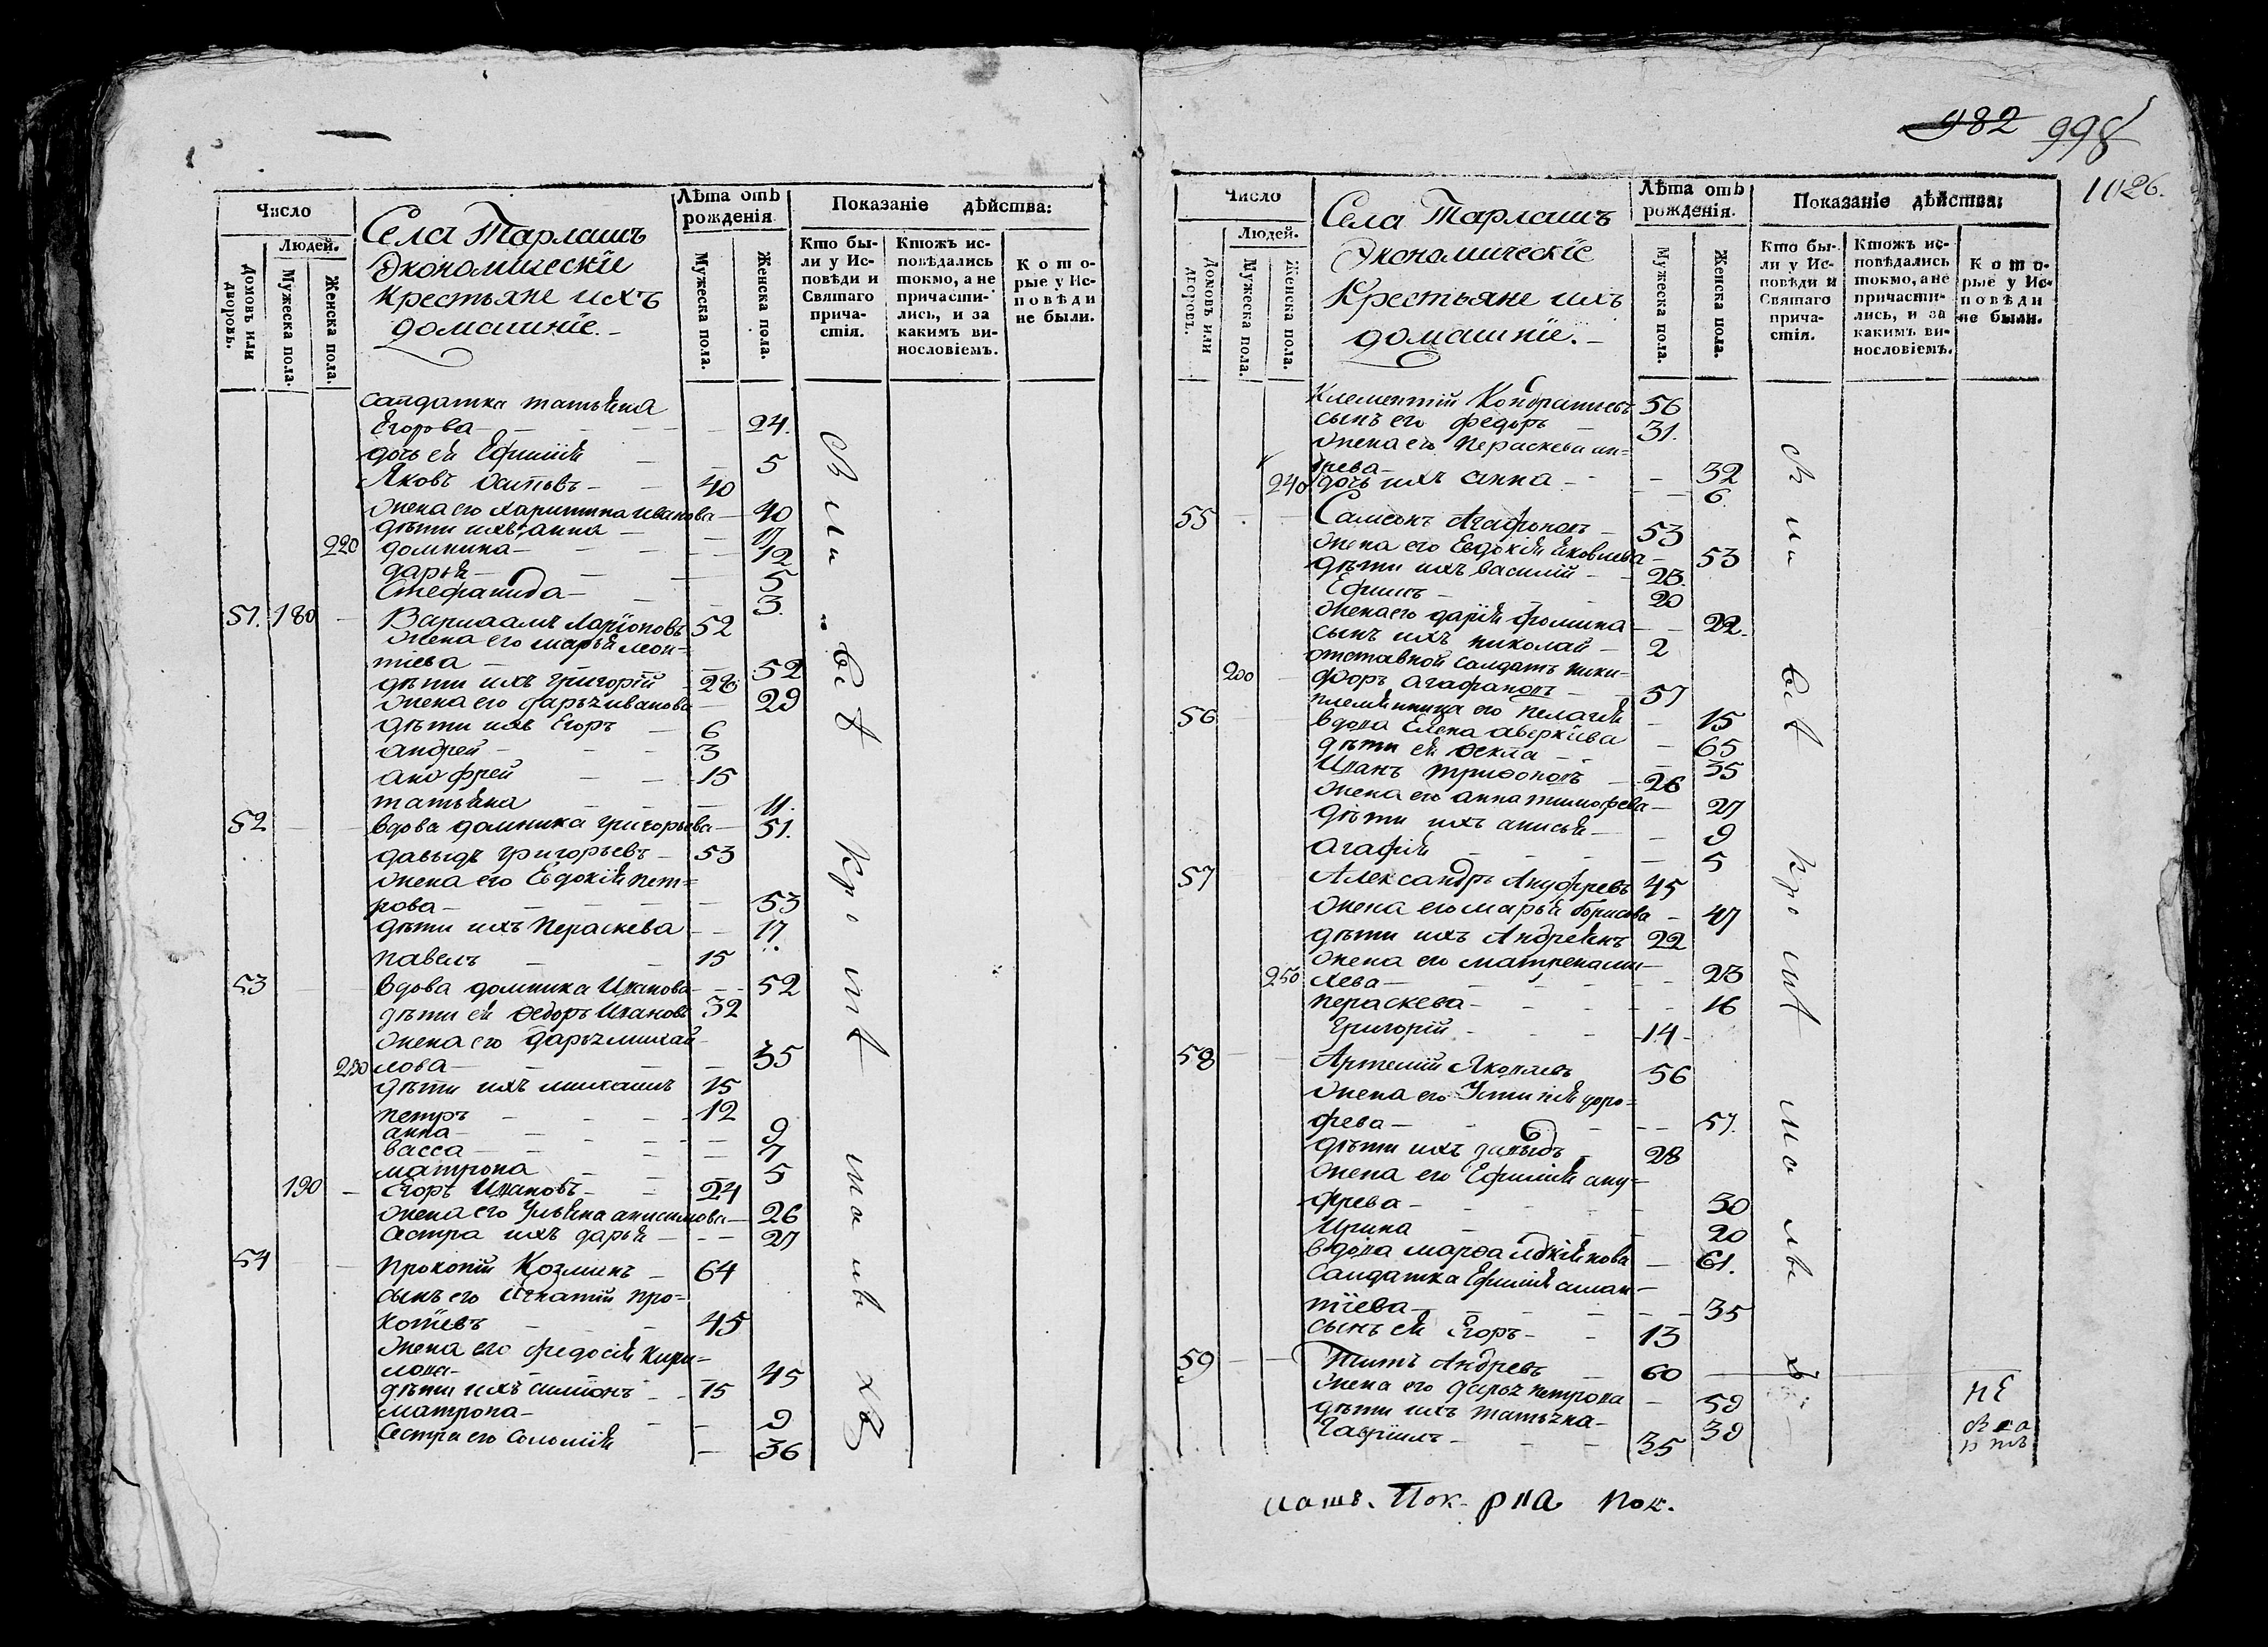 Число
Людей.
Домовъ или дворовъ.
Мужеска пола.
Женска пола.
Села Тарлашъ
Экономическіе
Крестьяне ихъ
домашніе.-
Лѣта отъ рожденія.
Мужеска пола.
Женска пола.
Показаніе дѣйства:
Кто бы-
ли у Ис-
повѣди и
Святаго
прича-
стія.
Ктожъ ис-
повѣдались
токмо, а не
причасти-
лись, и за
какимъ ви-
нословіемъ.
Кото-
рые у Ис-
повѣди
не были.
салдатка татьяна
Егорова — 24.
дочь ея Ефимія — 5
Яковъ Осиповъ — 40
жена его харитина иванова — 40
дѣти ихъ анна — 17
220 домнина — 12
дарья — 5
Стефанида — 3.
51. 180 — Варлаамъ Ларіоновъ 52
жена его марья леон-
тіева — 52
дѣти ихъ григорій 28
жена его дарья иванова — 29
дѣти ихъ Егоръ — 6
андрей — 3
анофрей — 15
татьяна — 11.
52 — вдова домника григорьева — 51.
давыдъ григорьевъ — 53
жена его Евдокія пет=
рова — 53
дѣти ихъ Пераскева — 17
павелъ — 15
53 — вдова домника Иванова — 52
дѣти ея Ѳедоръ Ивановъ 32
жена его дарья михай-
230 лова — 35
дѣти ихъ михаилъ 15
петръ — 12
анна — 9
васса — 7
матрона — 5
190 — Егоръ Ивановъ — 24
жена его Ульяна анисимова — 26
сестра ихъ дарья — 27
54 — Прокопій Козминъ — 64
сынъ его игнатій про=
копіевъ — 45
жена его федосія кири=
лова — 45
дѣти ихъ симіонъ — 15
матрона — 9
сестра его соломія — 36
982 998
1026.
Число
Людей.
Домовъ или дворовъ.
Мужеска пола.
Женска пола.
Села Тарлашъ
Экономическіе
Крестьяне ихъ
домашніе.-
Лѣта отъ рожденія.
Мужеска пола.
Женска пола.
Показаніе дѣйства:
Кто бы-
ли у Ис-
повѣди и
Святаго
прича-
стія.
Ктожъ ис-
повѣдались
токмо, а не
причасти-
лись, и за
какимъ ви-
нословіемъ.
Кото-
рые у Ис-
повѣди
не были.
Клементій Кондратьевъ 56
сынъ его федоръ — 31.
жена его Пераскева ан-
древа — 32
240 дочь ихъ анна — 6
55 — Самсонъ Агафоновъ — 53
жена его Евдокія яковлева — 53
дѣти ихъ василій — 23.
Ефимъ — 20
жена его дарія фомина — 22.
сынъ ихъ николай — 2
отставной салдатъ ники-
200 — форъ агафоновъ — 57
племянница его пелагія — 15
56 — вдова Елена аверкіева — 65
дѣти ея Ѳекла — 35
Иванъ трифоновъ — 26
жена его анна тимофева — 27
дѣти ихъ анисья — 9
агафія — 5
57 — Александръ Ануфревъ 45
жена его марья борисова — 47
дѣти ихъ Андреянъ 22
жена его матрена ми-
250 хева — 23
пераскева — 16
григорій — 14
58 — Артемій Яковлевъ 56
жена его Устинія доро=
фева — 57.
дѣти ихъ давыдъ — 28
жена его Ефимія ану=
фрева — 30
Ирина — 20
вдова марѳа — 61.
Салдатка Ефимія
тіева — 35
сынъ ея Егоръ — 13
59 — Титъ Андревъ — 60
жена его дарья петрова — 59
дѣти ихъ татьяна — 39
Гавріилъ — 35